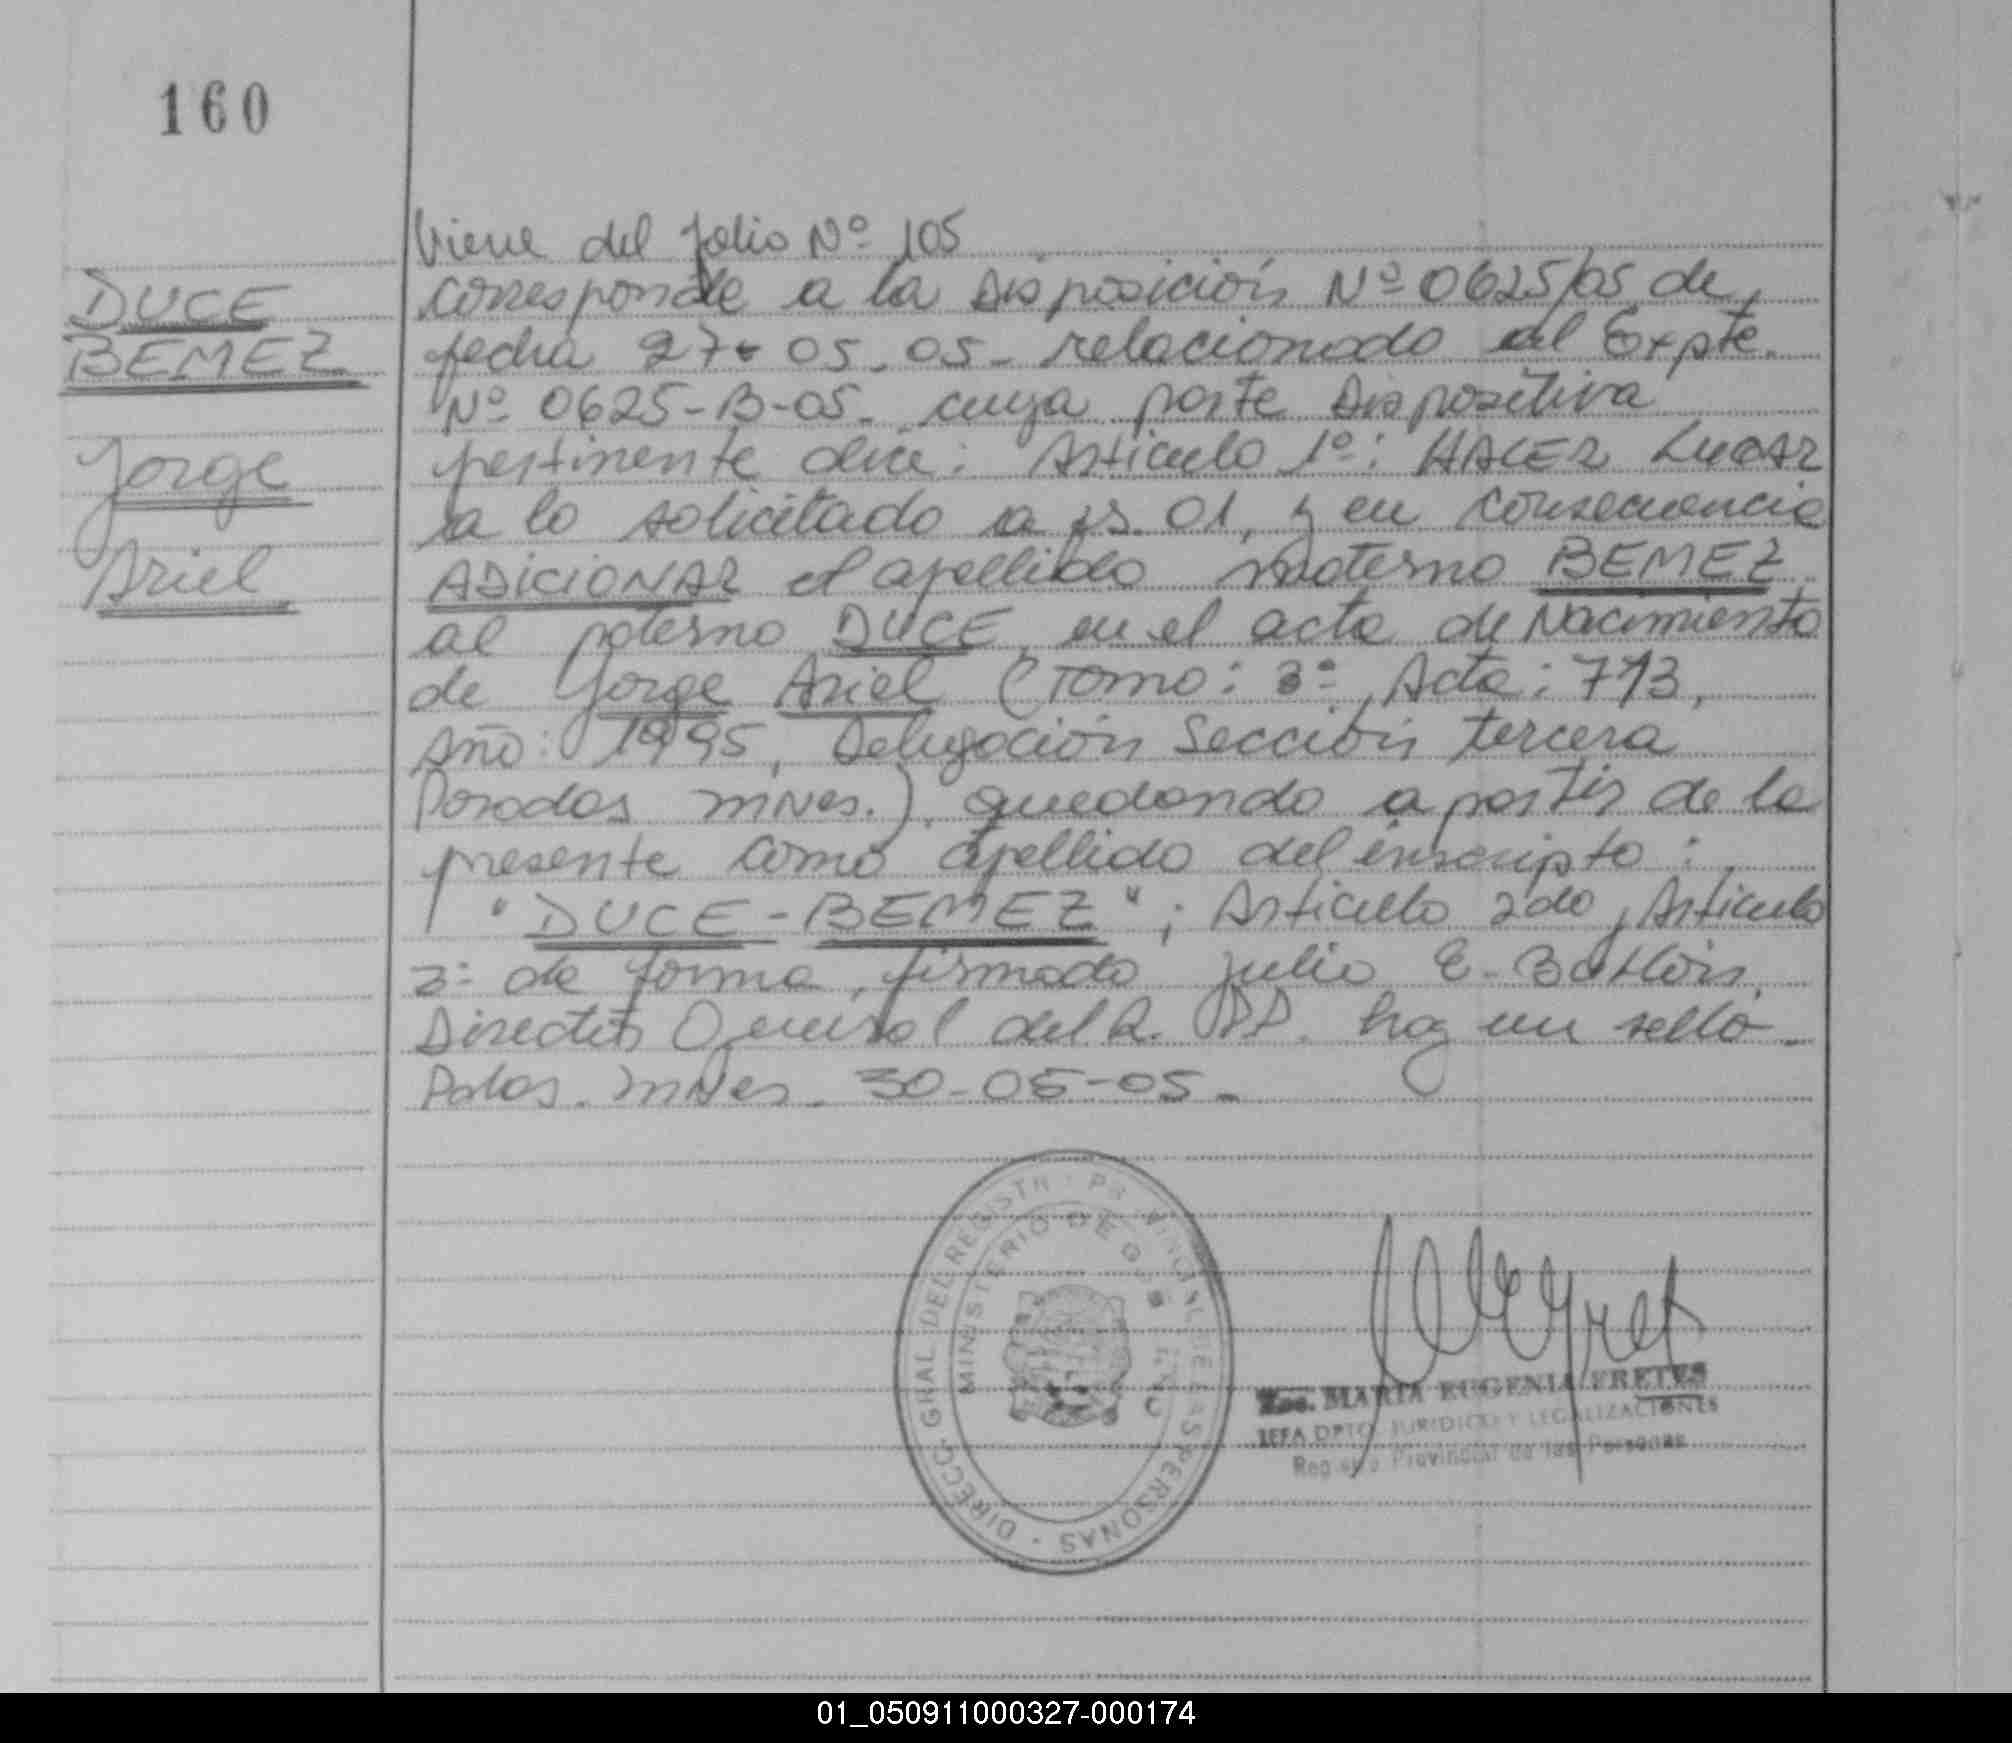 160
Viene del folio Nº 105
DUCE
BEMEZ
Jorge
Ariel
corresponde a la Disposición Nº 0625/05 de
fecha 27-05-05- relacionado al Expte.
Nº 0625-B-05- cuya parte Dispositiva
pertinente dice: Articulo 1º: HACER LUGAR
a lo solicitado a fs. 01, y en consecuencia
ADICIONAR el apellido materno BEMEZ
al paterno DUCE, en el acta de Nacimiento
de Jorge Ariel (Tomo: 3º, Acta: 713,
Año: 1995, Delegación Sección tercera
Posadas mnes.). quedando a partir de la
presente como apellido del inscripto:
"DUCE-BEMEZ"; Articulo 2do, Articulo
3º de forma, firmado Julio E.
Director General del R. P.P. hay un sello-
Pdas. mnes. 30-05-05-
DIRECC. GRAL. DEL REGISTR PROVINCIAL DE LAS PERSONAS
MINISTERIO DE GOBIERNO
MARIA EUGENIA FRETES
JEFA DPTO. JURIDICO Y LEGALIZACIONES
Registro Provincial de las Personas
01_050911000327-000174